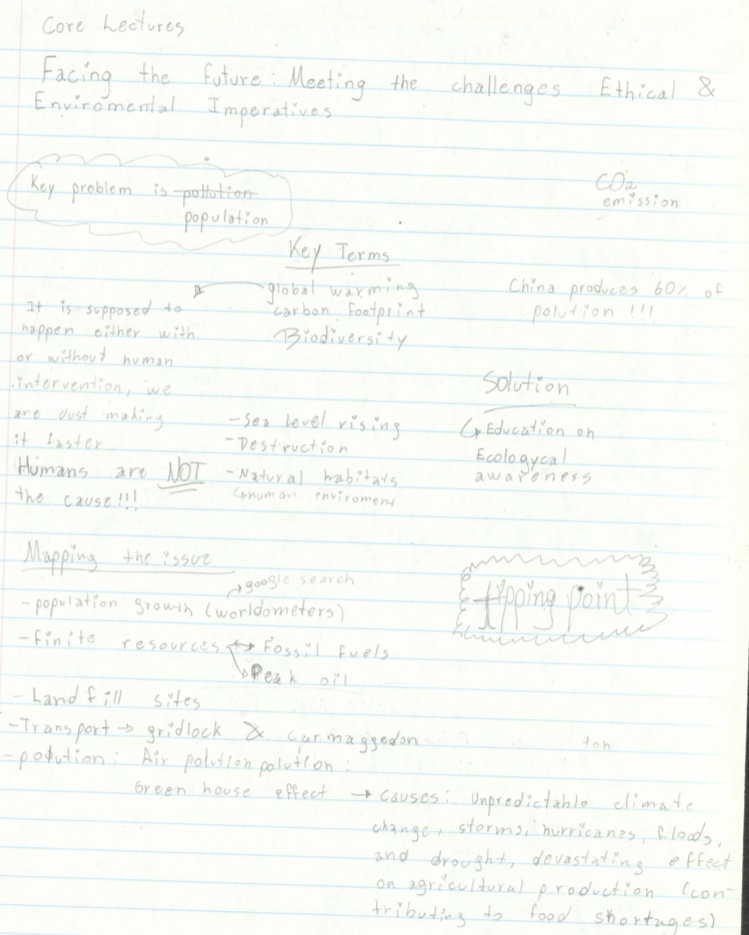 Core Lectures
Facing the future: Meeting the challenges Ethical &
Enviromental Imperatives
Key problem is pollution
population
CO2
emission
Key Terms
global warming
carbon footprint
Biodiversity
China produces 60% of
polution !!!
It is supposed to
happen either with
or without human
intervention, we
are just making
it faster
Humans are NOT
the cause!!!
-Sea level rising
-Destruction
-Natural habitats
human enviroment
Solution
↳Education on
Ecologycal
awareness
Mapping the issue
→google search
-population growth (worldometers)
-finite resources ↔ Fossil fuels
↘Peak oil
tipping point
-Landfill sites
-Transport → gridlock & carmaggedon
ton
-polution: Air polution polution:
Green house effect → causes: Unpredictable climate
change, storms, hurricanes, floods,
and drought, devastating effect
on agricultural production (con-
tributing to food shortages)